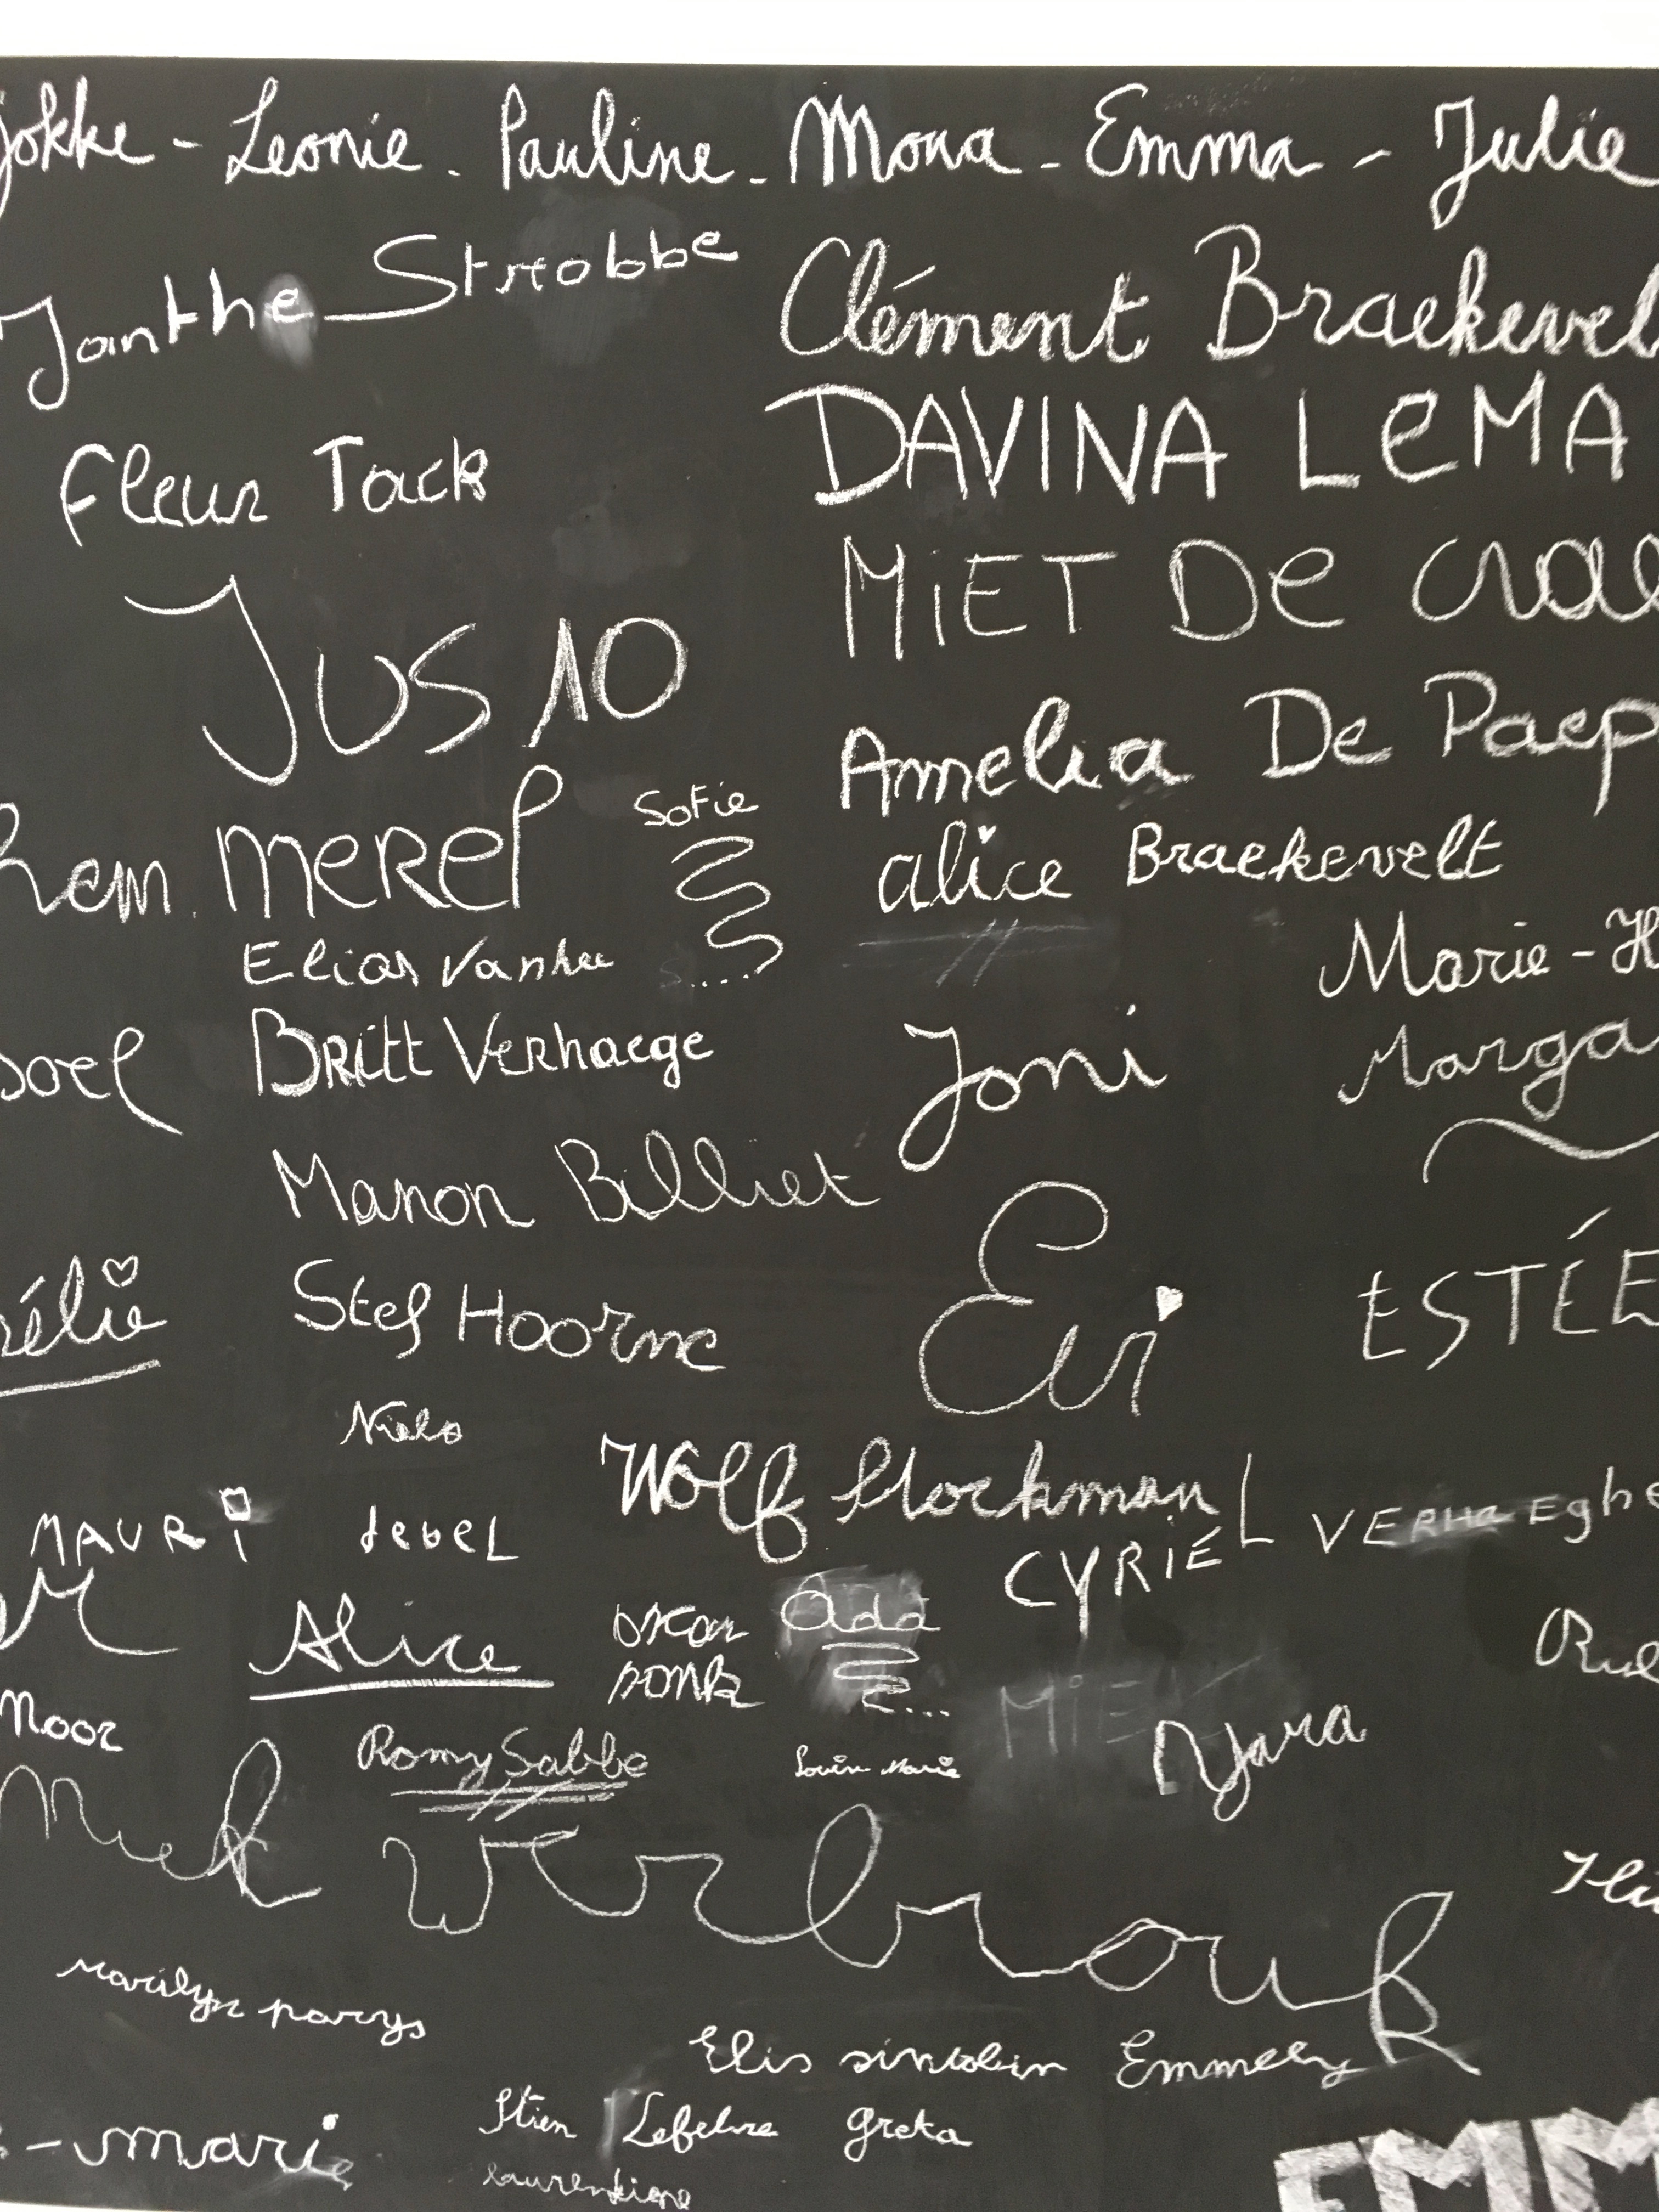 Jokke - Leonie - Pauline - Moua - Emma - Julie
Janthe Strobbe
Clément Braekevel
Fleur Tack
DAVINA LeMA
MiET De Crae
JUS 10
Amelia De Paep
hem. MEREL
Sofie
alice Braekevelt
Elias Vanhee
s....
Marie-H
oel
Britt Verhaege
Joni
Marga
Manon Billiet
rélie
Stef Hoorne
Evi
ESTÉE
Niels
Wolf Stockman
MAURi
CYRIEL VERHAEghe
M
Alice
oscar
Ada
...
MiE
Noor
Romy Sabbe
Louise Marie
Nyara
Miek Verbrouk
Marilyn parys
Elis sintobin
Emmely
- marie
Stien Lefebvre
Greta
laurentine
EMM